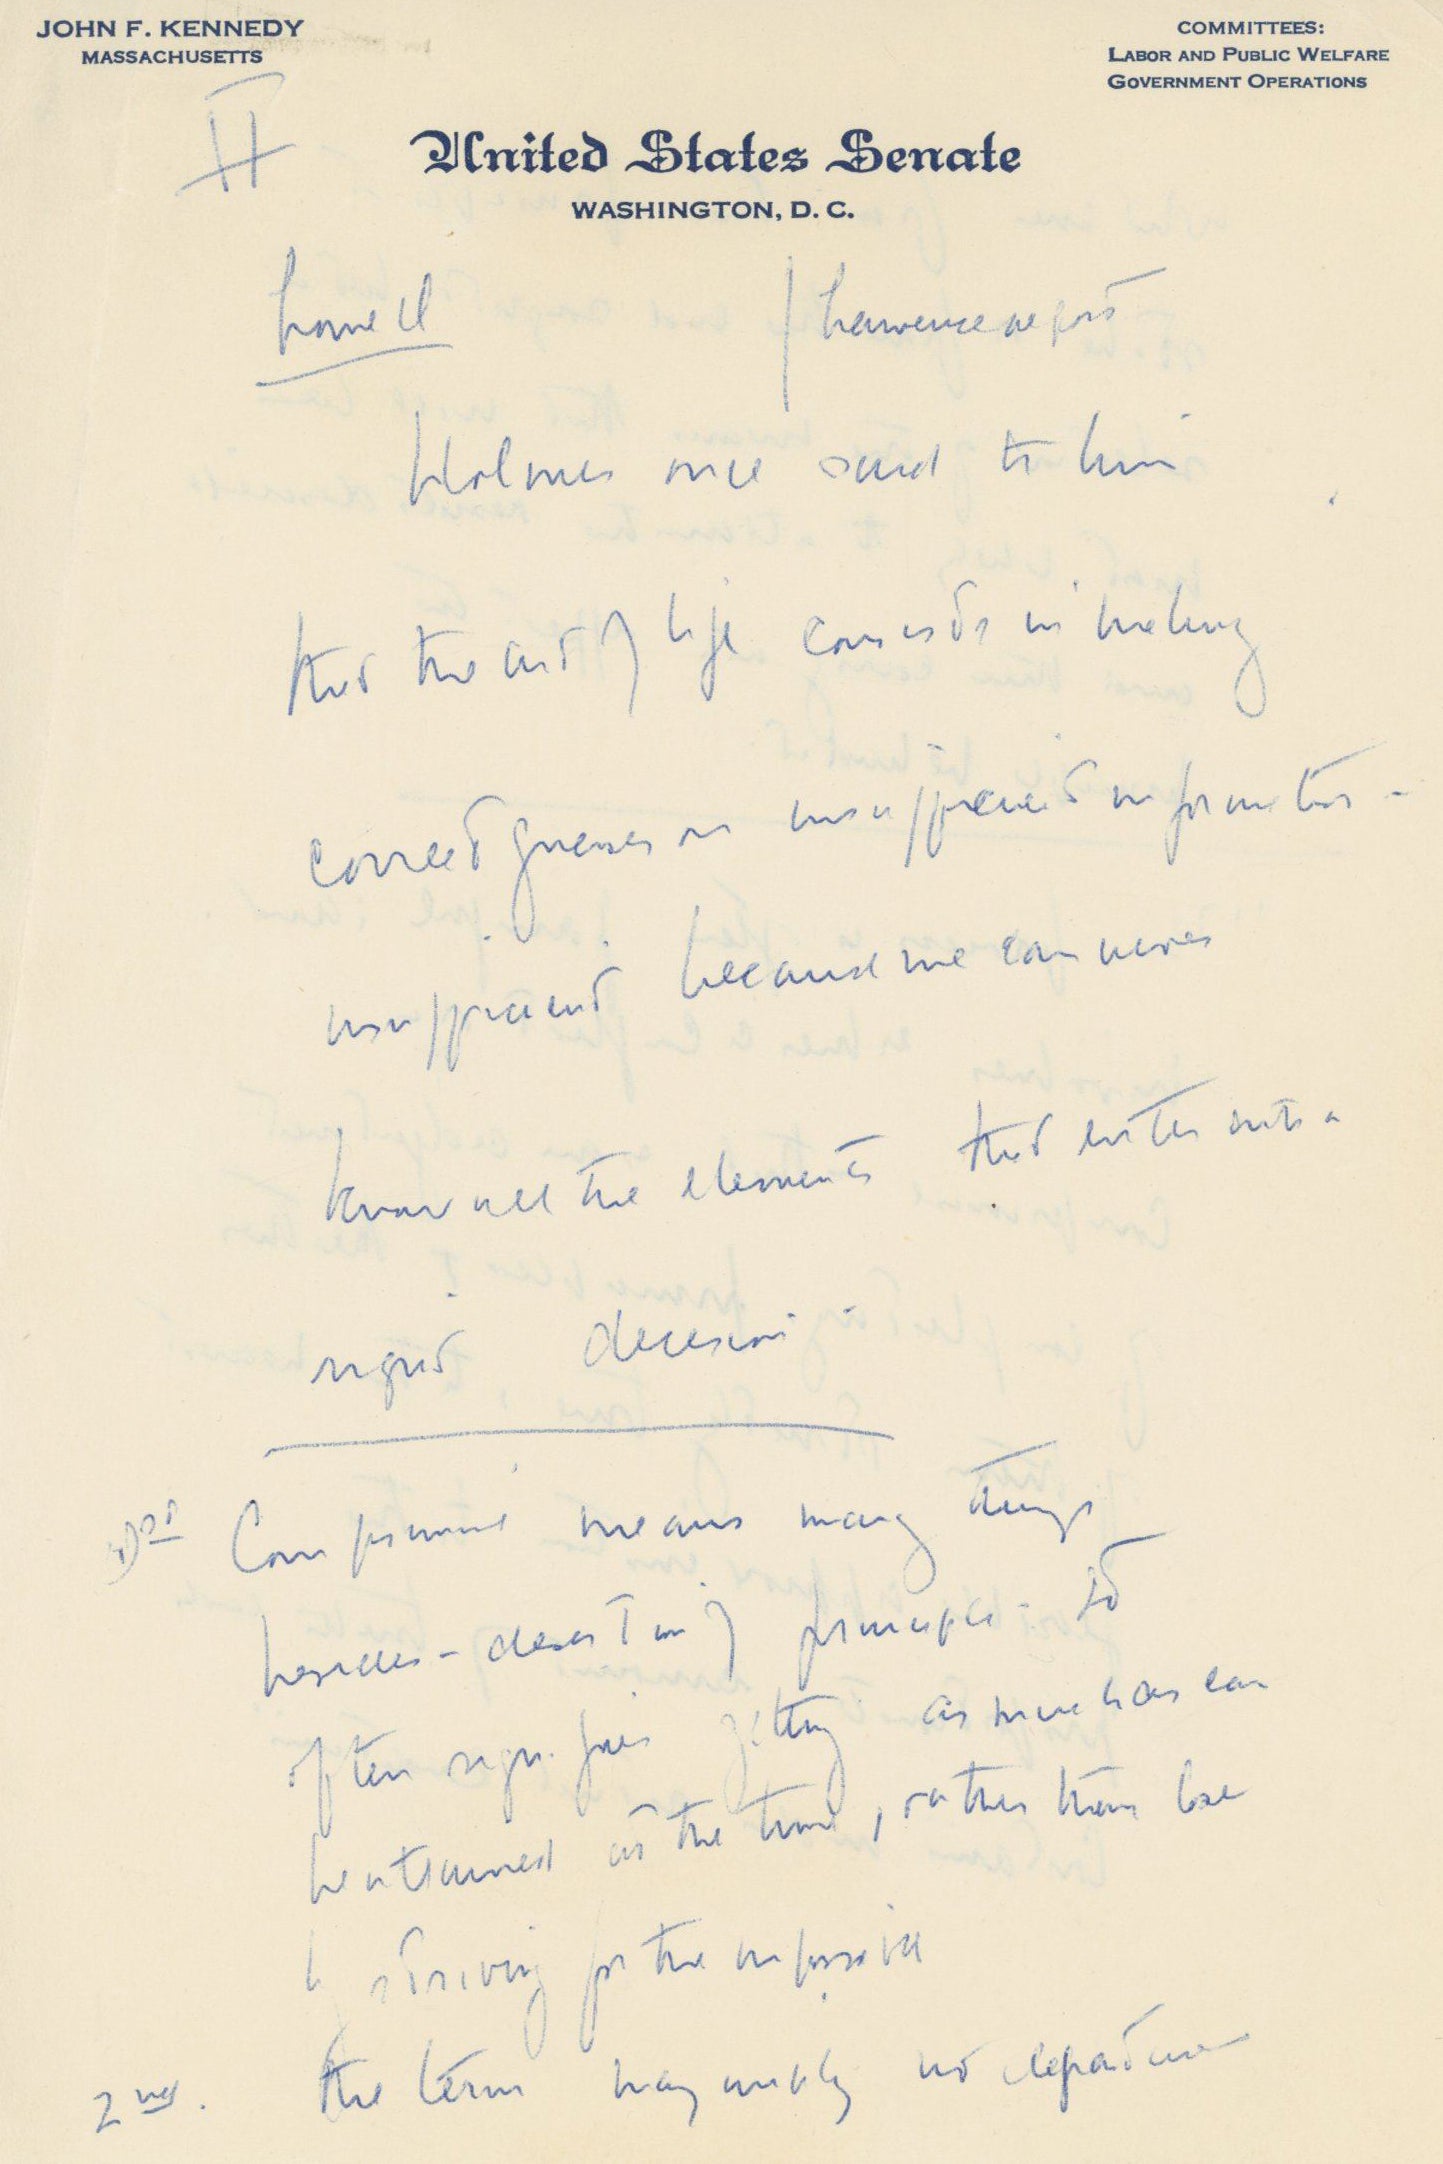 JOHN F. KENNEDY
MASSACHUSETTS
COMMITTEES:
LABOR AND PUBLIC WELFARE
GOVERNMENT OPERATIONS
II
United States Senate
WASHINGTON, D. C.
Lowell
Lawrence report
Holmes once said to him
that the art of life consists in making
correct guesses on insufficient information -
insufficient because we can never
know all the elements that enter into a
right decision
1st Compromise means many things
besides - desertion of principle - It
often signifies getting as much as can
be attained at the time, rather than lose
by striving for the impossible
2nd. the term may imply no departure